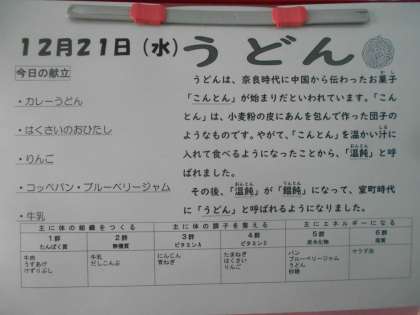 12月21日(水) うどん
今日の献立
・カレーうどん
・はくさいのおひたし
・りんご
・コッペパン・ブルーベリージャム
・牛乳
うどんは、奈良時代に中国から伝わったお菓子
「こんとん」が始まりだといわれています。「こん
とん」は、小麦粉の皮にあんを包んで作った団子の
ようなものです。やがて、「こんとん」を温かい汁に
入れて食べるようになったことから、「温飩」と呼
ばれました。
その後、「温飩」が「饂飩」になって、室町時代
に「うどん」と呼ばれるようになりました。
主に体の組織をつくる 主に体の調子を整える 主にエネルギーになる
1群 2群 3群 4群 5群 6群
たんぱく質 無機質 ビタミンA ビタミンC 炭水化物 脂質
牛肉 牛乳 にんじん たまねぎ パン サラダ油
うすあげ だしこんぶ 青ねぎ はくさい ブルーベリージャム
けずりぶし りんご うどん
砂糖